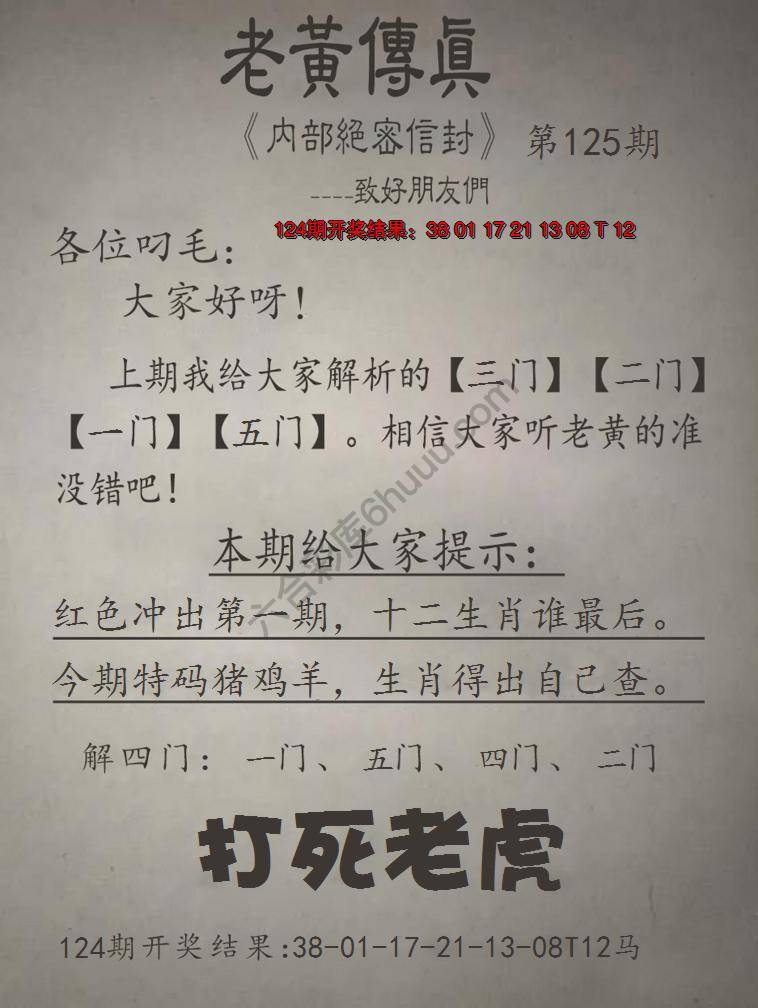 老黃傳真
《内部絕密信封》 第125期
----致好朋友們
124期开奖结果：38 01 17 21 13 08 T 12
各位叼毛：
大家好呀！
上期我给大家解析的【三门】【二门】
【一门】【五门】。相信大家听老黄的准
没错吧！
六合彩库6huuu.com
本期给大家提示：
红色冲出第一期，十二生肖谁最后。
今期特码猪鸡羊，生肖得出自己查。
解四门：一门、五门、四门、二门
打死老虎
124期开奖结果:38-01-17-21-13-08T12马